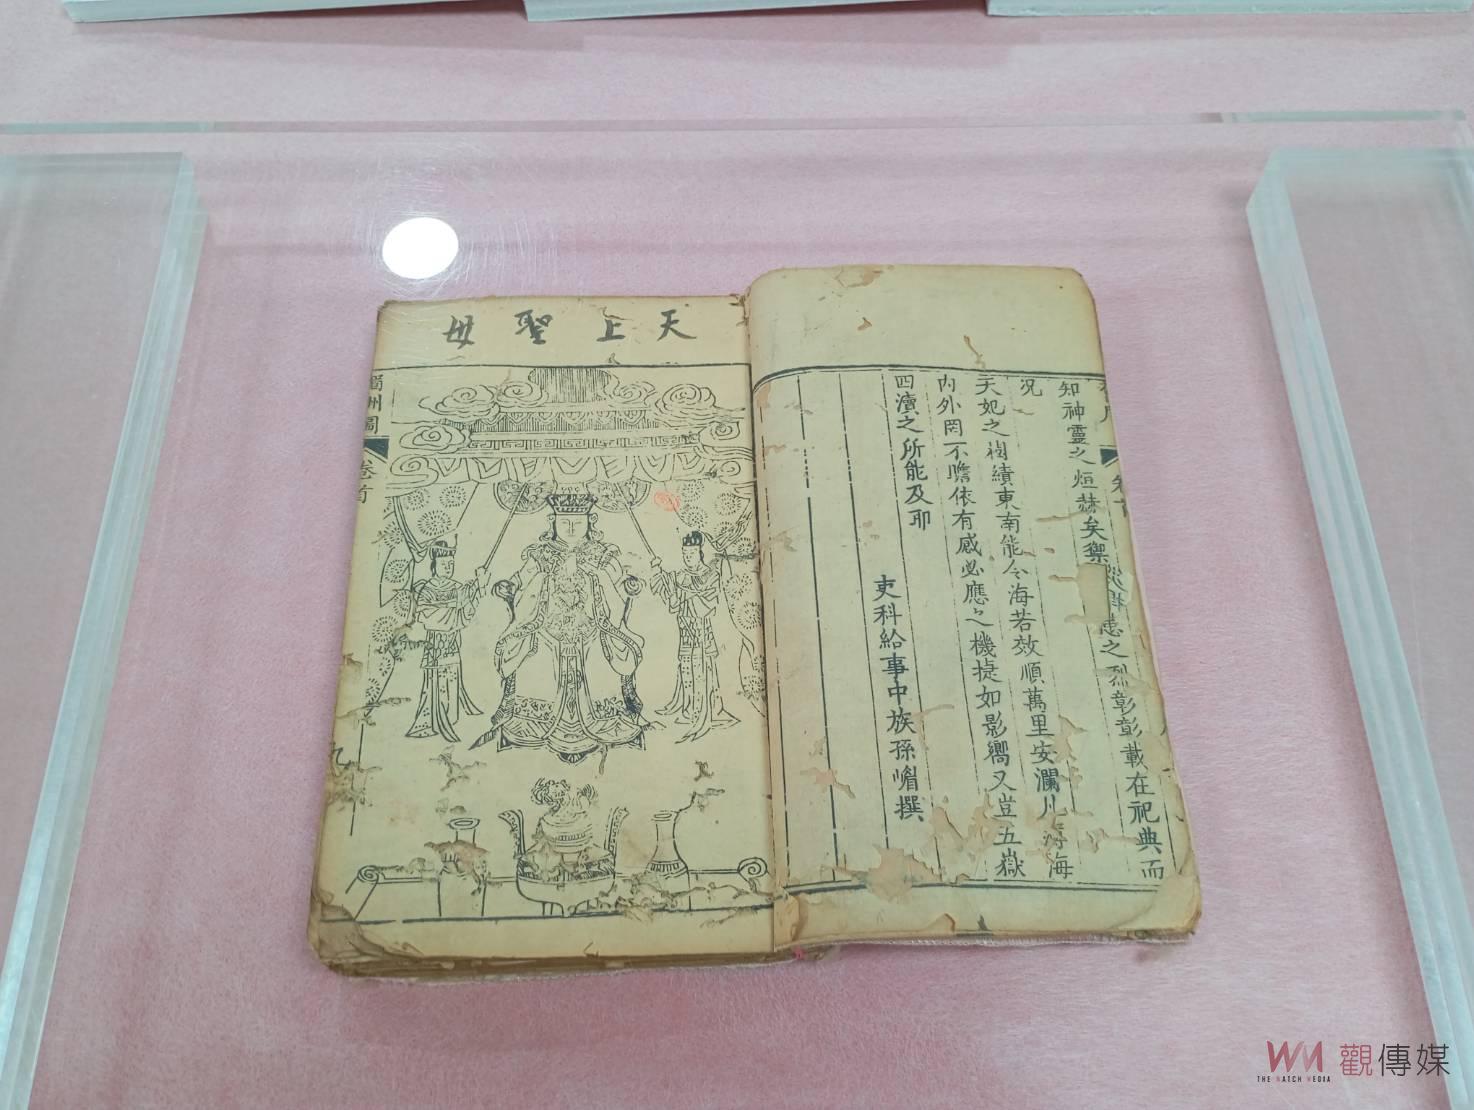 知神靈之烜赫矣禦災捍患之烈彰彰載在祀典而
况
天妃之樹績東南能令海若效順萬里安瀾凡海
內外罔不瞻依有感必應之機捷如影嚮又豈五嶽
四瀆之所能及耶
吏科給事中族孫嵋撰
天上聖母
湄洲圖 卷首 九
WM 觀傳媒
THE WATCH MEDIA